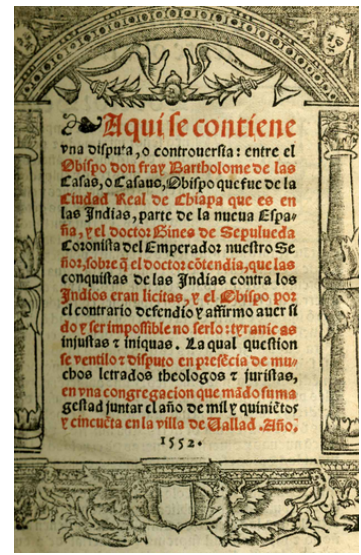 Aqui se contiene
vna disputa, o controuersia: entre el
Obispo don fray Bartholome de las
Casas, o Casaus, Obispo que fue de la
Ciudad Real de Chiapa que es en
las Indias, parte de la nueua Espa-
ña, y el doctor Gines de Sepulueda
Coronista del Emperador nuestro Se
ñor, sobre q̃ el doctor cõtendia, que las
conquistas de las Indias contra los
Indios eran licitas, y el Obispo por
el contrario defendio y affirmo auer si
do y ser impossible no serlo: tyranicas
injustas ⁊ iniquas. La qual question
se ventilo ⁊ disputo en presẽcia de mu-
chos letrados theologos ⁊ juristas,
en vna congregacion que mãdo su ma
gestad juntar el año de mil y quiniẽtos
y cincuẽta en la villa de Vallad. Año.
1552.